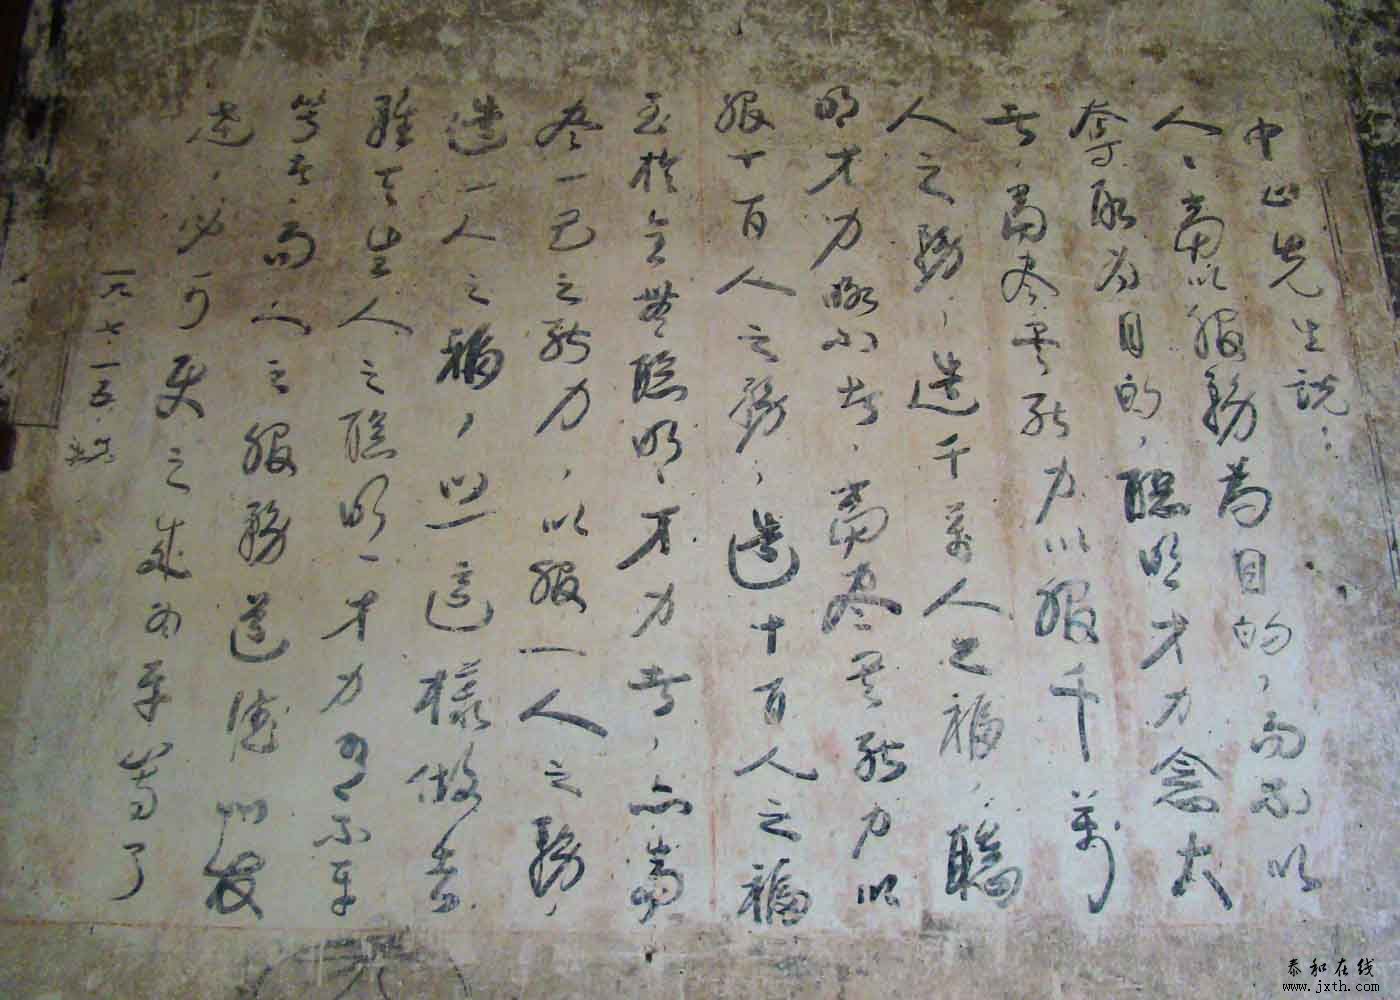 中山先生説：
人々當以服務為目的，而不以
奪取为目的，聰明才力愈大
者，當尽其能力以服千萬
人之務，造千萬人之福，聰
明才力略小者，當尽其能力以
服十百人之務，造十百人之福
至於全無聰明才力者，亦當
尽一己之能力，以服一人之務，
造一人之福，照這樣做去
雖天生人之聰明才力有不平
等者，而人之服務道德心發
达，必可使之成为平等了
一九.七.一五.
泰和在线
www.jxth.com